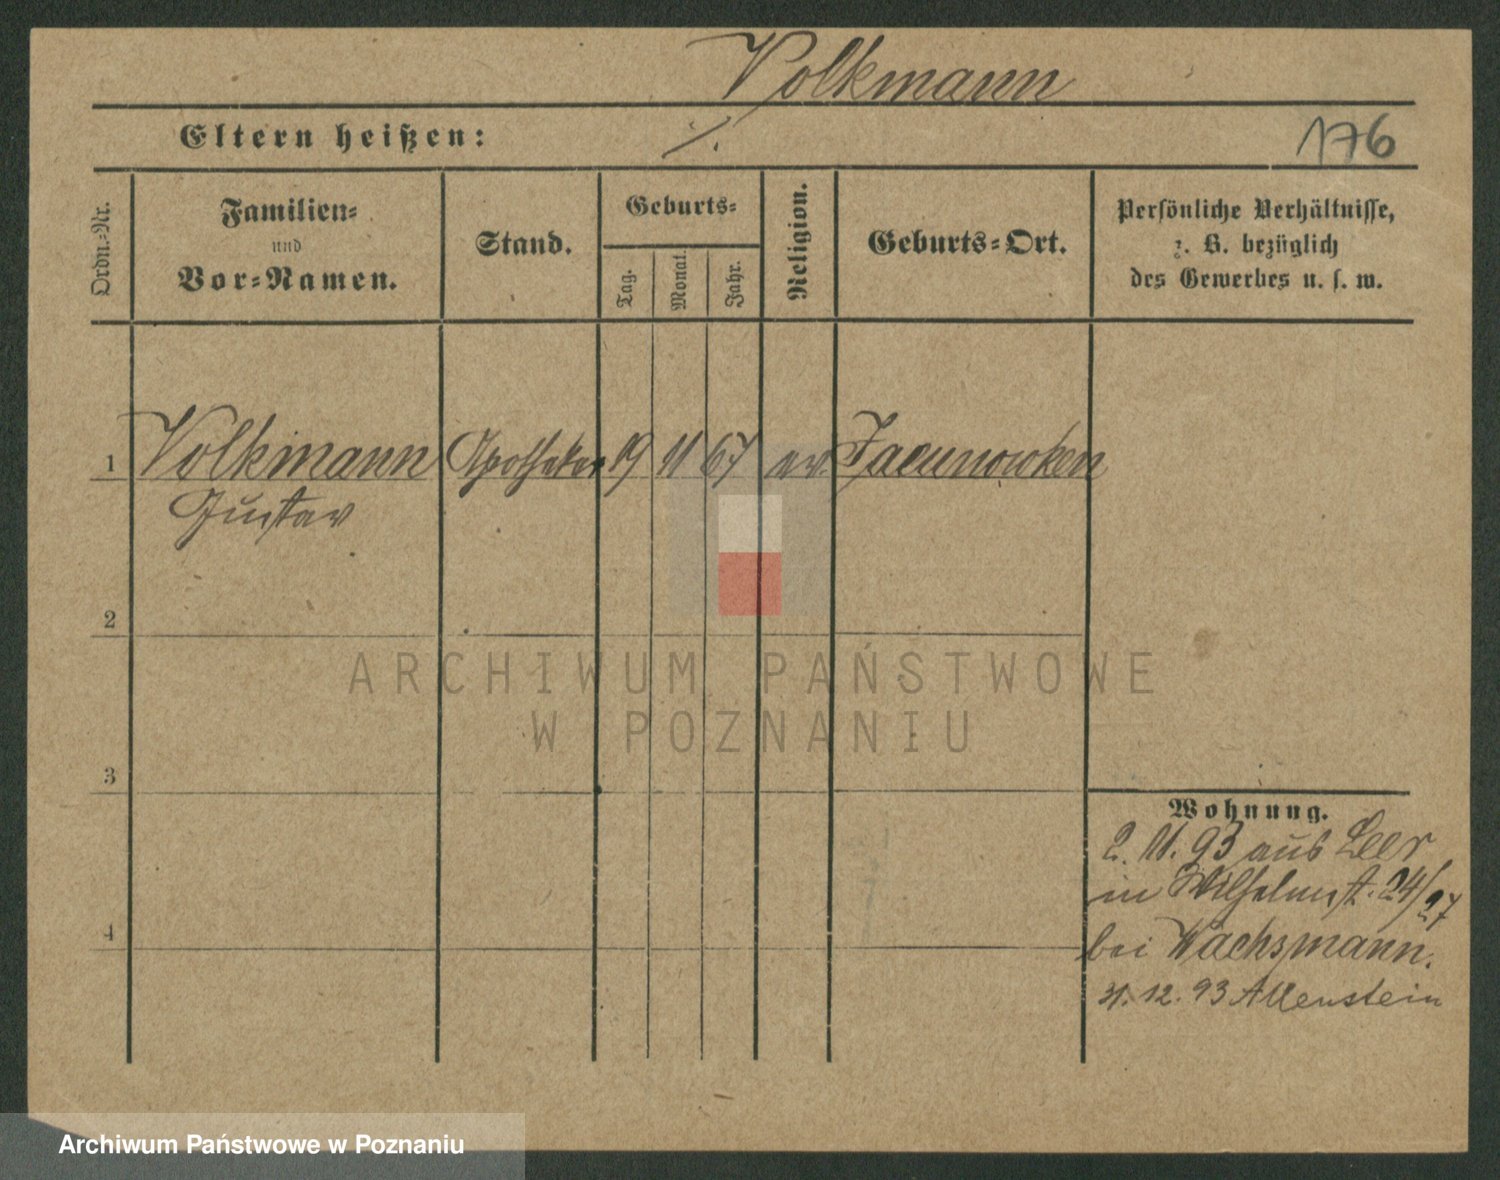 Volkmann
Eltern heißen: ./.
176
Ordn.-Nr.
Familien-
und
Vor-Namen.
Stand.
Geburts-
Tag.
Monat.
Jahr.
Religion.
Geburts-Ort.
Persönliche Verhältnisse,
z. B. bezüglich
des Gewerbes u. s. w.
1 Volkmann Apotheker 19 11 67 ev.
Gustav
2
3
4
Wohnung.
2. 11. 93 aus Leer
in Wilhelmst. 24/27
bei Wachsmann.
31. 12. 93 Allenstein
ARCHIWUM PAŃSTWOWE
W POZNANIU
Archiwum Państwowe w Poznaniu